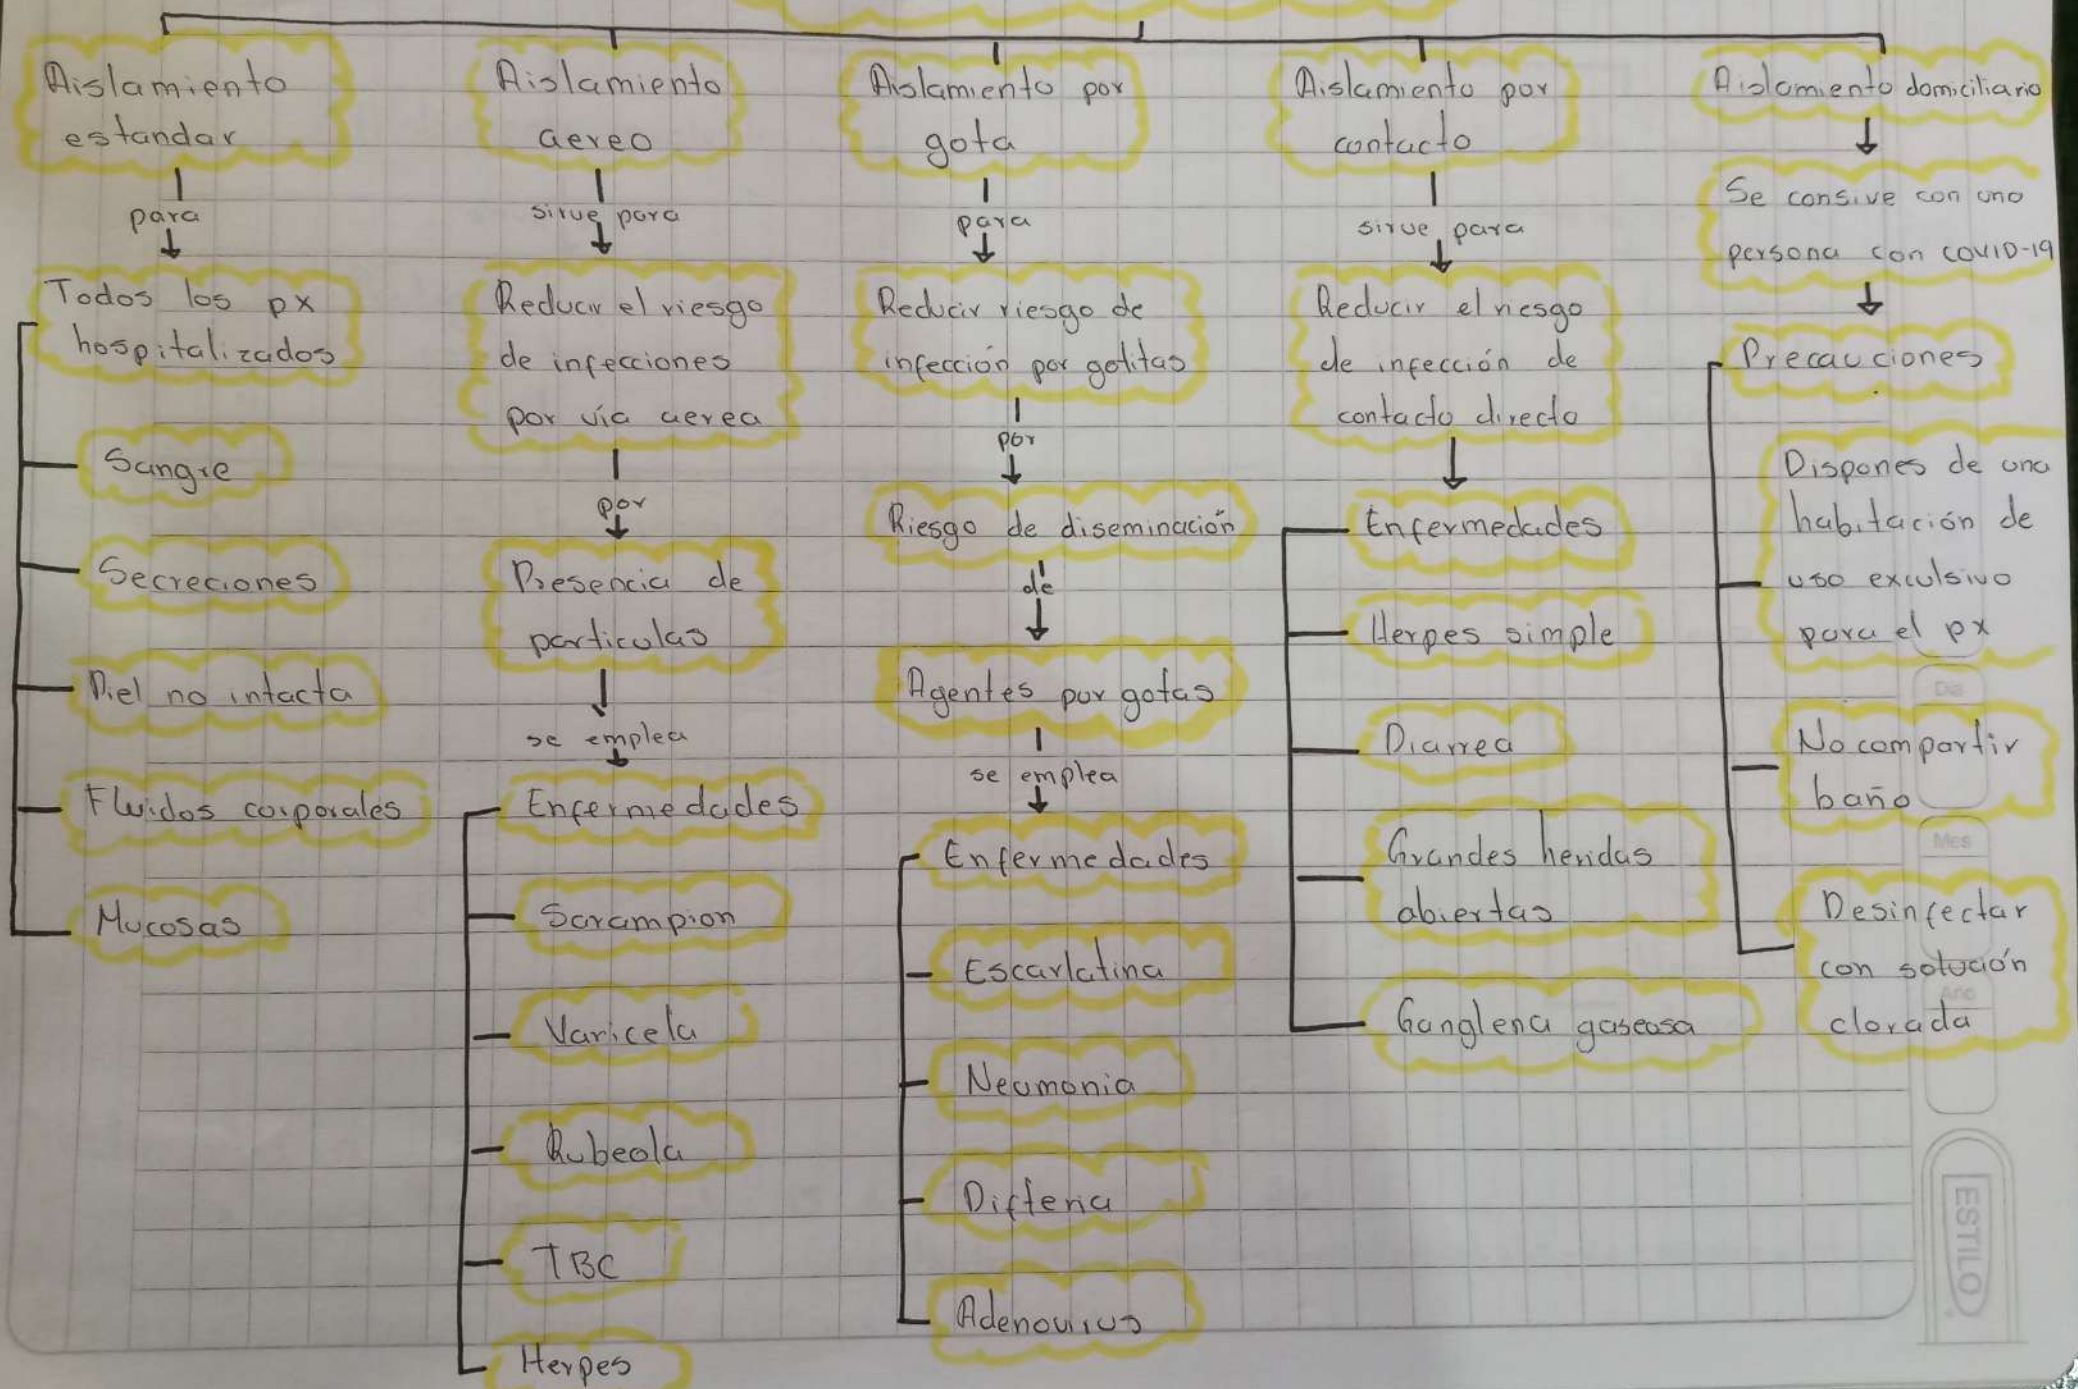 Aislamiento
estandar
para
Todos los px
hospitalizados
Sangre
Secreciones
Piel no intacta
Fluidos corporales
Mucosas
Aislamiento
aereo
sirve para
Reducir el riesgo
de infecciones
por vía aerea
por
Presencia de
particulas
se emplea
Enfermedades
Sarampion
Varicela
Rubeola
TBC
Herpes
Aislamiento por
gota
para
Reducir riesgo de
infección por gotitas
por
Riesgo de diseminación
de
Agentes por gotas
se emplea
Enfermedades
Escarlatina
Neumonia
Difteria
Adenovirus
Aislamiento por
contacto
sirve para
Reducir el riesgo
de infección de
contacto directo
Enfermedades
Herpes simple
Diarrea
Grandes heridas
abiertas
Ganglena gaseosa
Aislamiento domiciliario
Se consive con una
persona con COVID-19
Precauciones
Dispones de una
habitación de
uso exculsivo
para el px
No compartir
baño
Desinfectar
con solución
clorada
Dia
Mes
Año
ESTILO